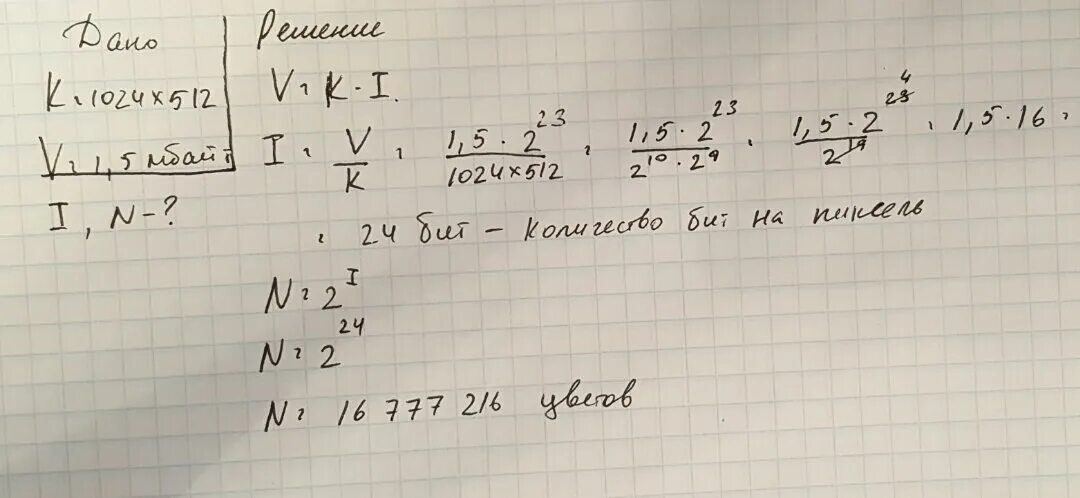 Дано
K = 1024×512
V = 1,5 мбайт
I, N - ?
Решение
V = K · I.
I = V/K = 1,5 · 2^23 / 1024×512 = 1,5 · 2^23 / 2^10 · 2^9 = 1,5 · 2^23 4 / 2^19 = 1,5 · 16 =
= 24 бит - количество бит на пиксель
N = 2^I
N = 2^24
N = 16 777 216 цветов